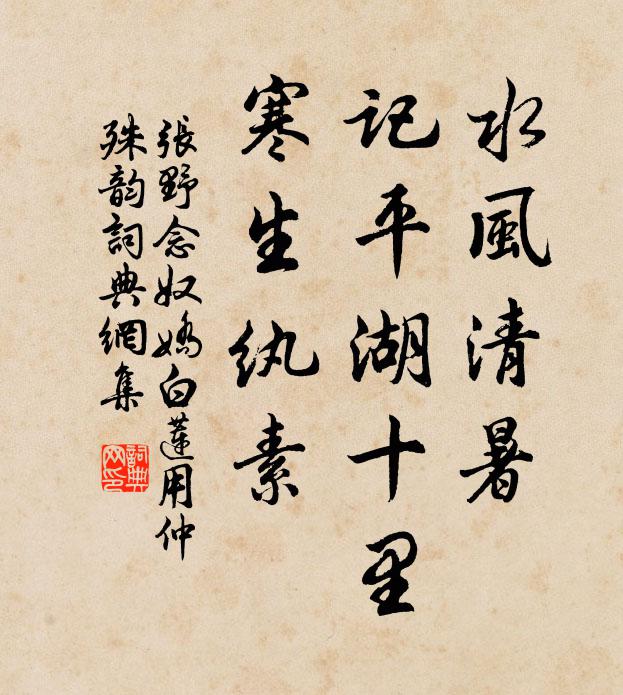 水風清暑
記平湖十里
寒生紈素
張野念奴嬌白蓮用仲
殊韵詞典網集
詞典网印